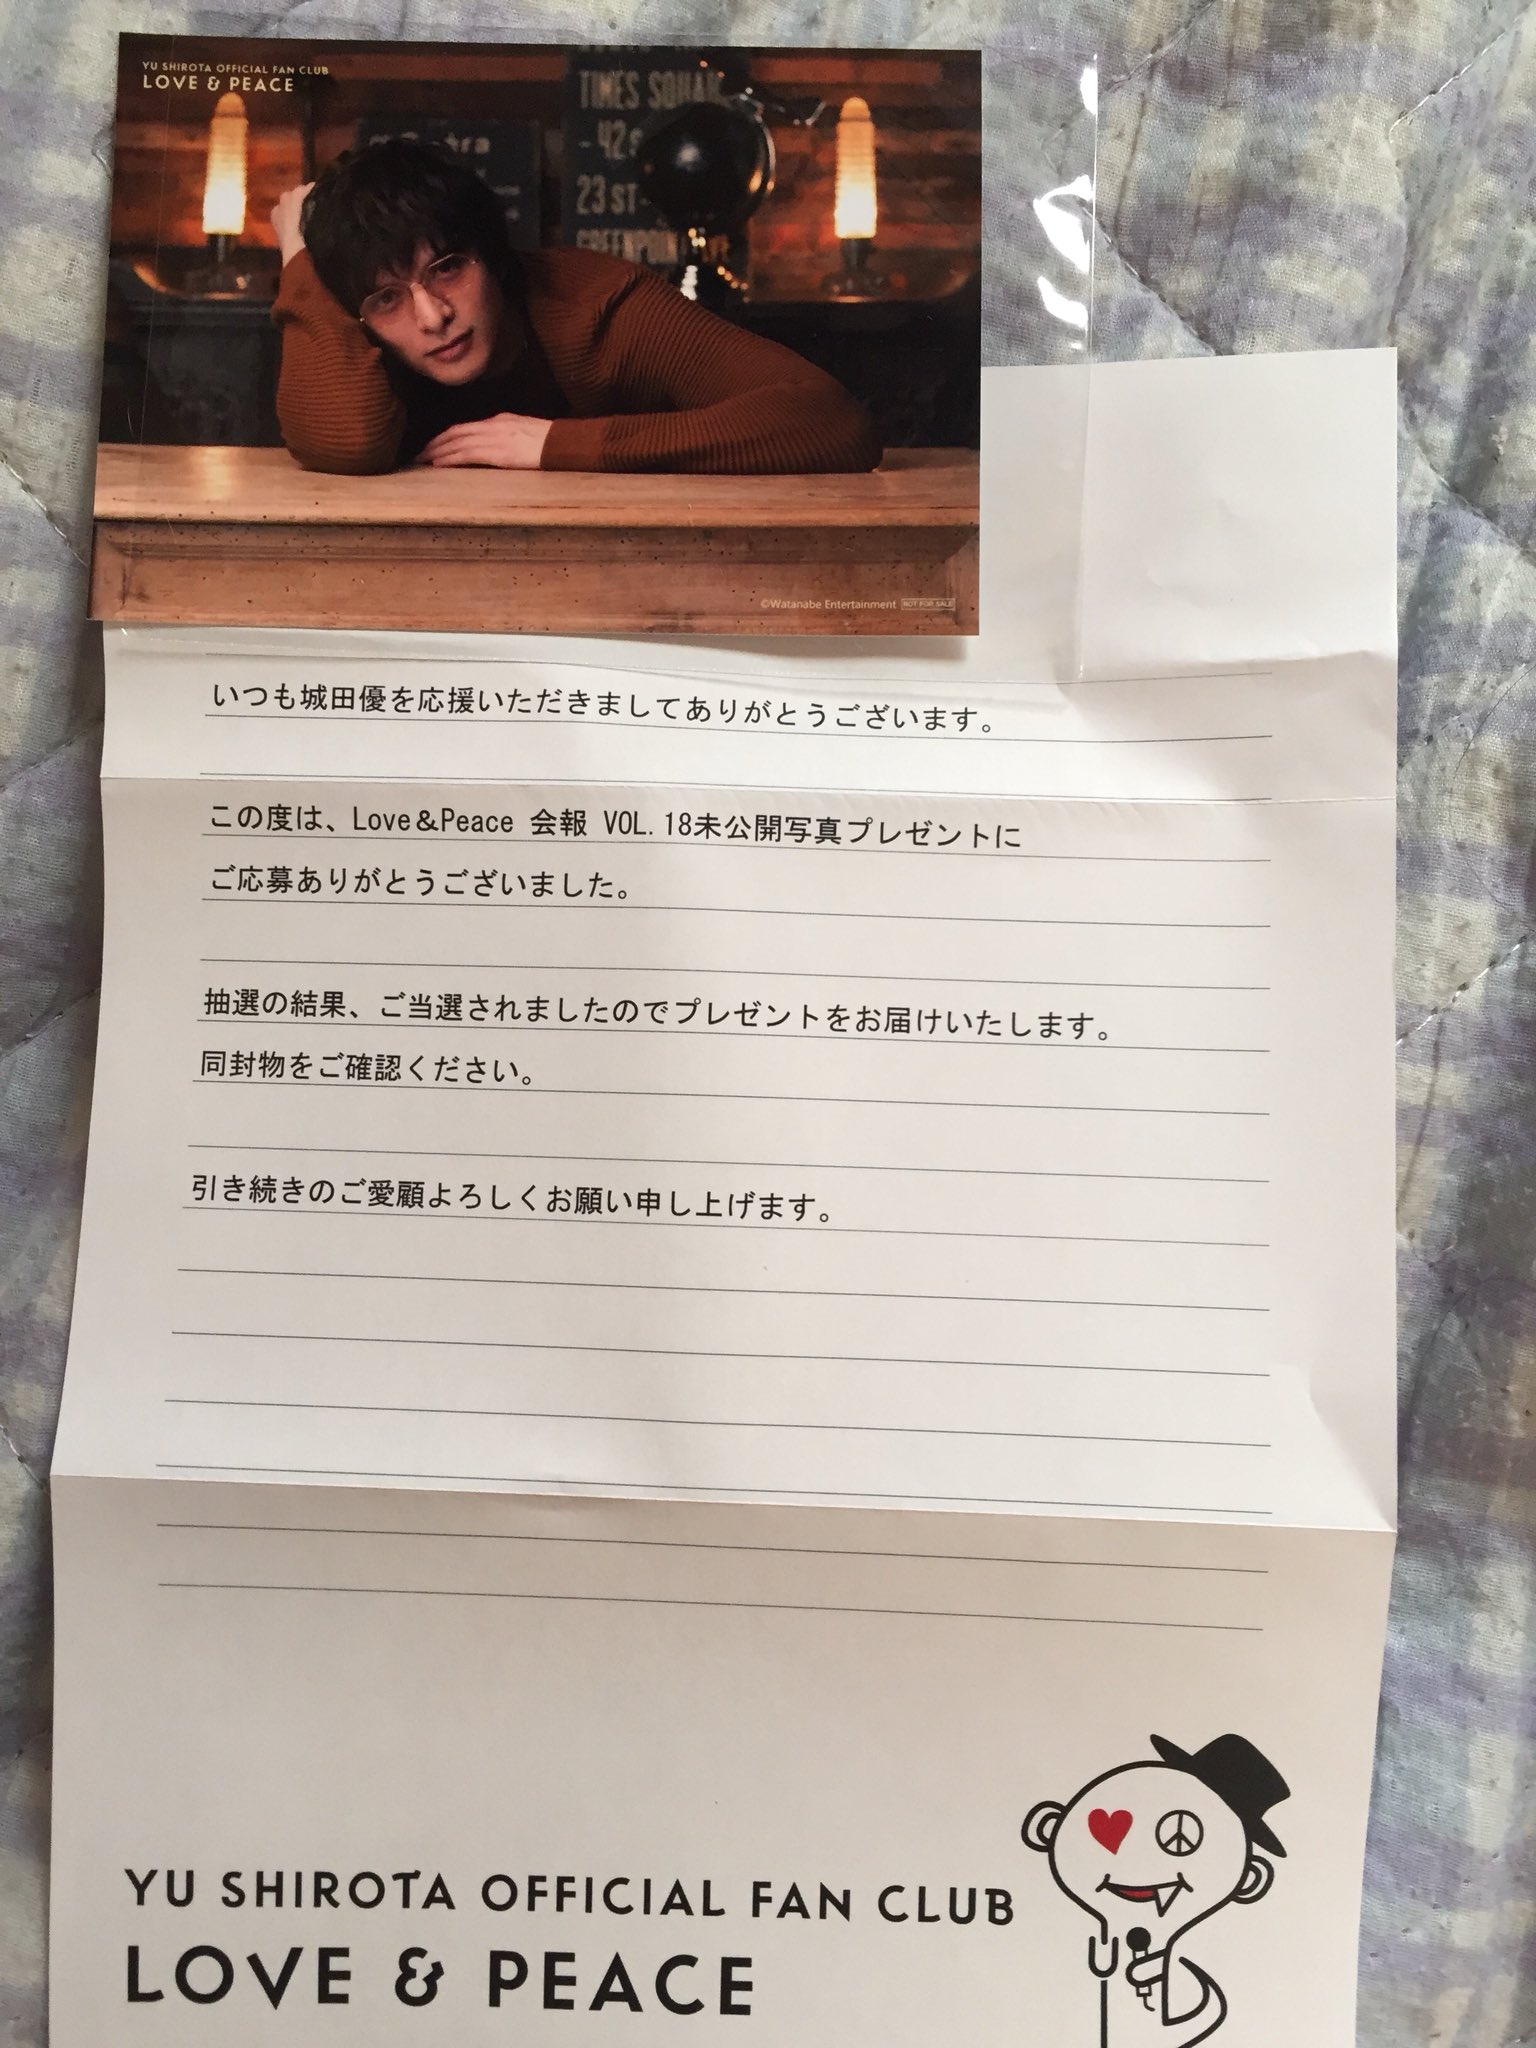 YU SHIROTA OFFICIAL FAN CLUB
LOVE & PEACE
TIMES SQUARE
-42S
23 ST-
GREENPOINT AVE
©Watanabe Entertainment NOT FOR SALE
いつも城田優を応援いただきましてありがとうございます。
この度は、Love&Peace 会報 VOL.18未公開写真プレゼントに
ご応募ありがとうございました。
抽選の結果、ご当選されましたのでプレゼントをお届けいたします。
同封物をご確認ください。
引き続きのご愛顧よろしくお願い申し上げます。
YU SHIROTA OFFICIAL FAN CLUB
LOVE & PEACE